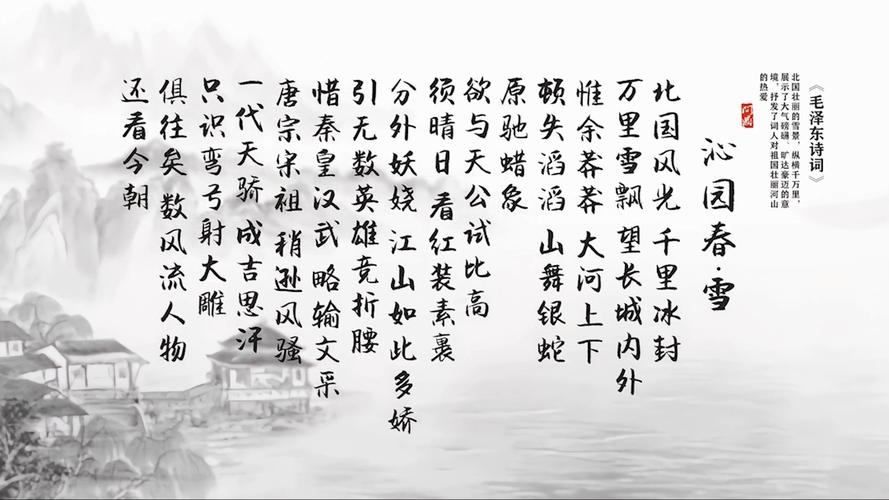 《毛泽东诗词》
北国壮丽的雪景，纵横千万里，
展示了大气磅礴、旷达豪迈的意
境，抒发了词人对祖国壮丽河山
的热爱
沁园春·雪
北国风光 千里冰封
万里雪飘 望长城内外
惟余莽莽 大河上下
顿失滔滔 山舞银蛇
原驰蜡象
欲与天公试比高
须晴日 看红装素裹
分外妖娆 江山如此多娇
引无数英雄竞折腰
惜秦皇汉武 略输文采
唐宗宋祖 稍逊风骚
一代天骄 成吉思汗
只识弯弓射大雕
俱往矣 数风流人物
还看今朝